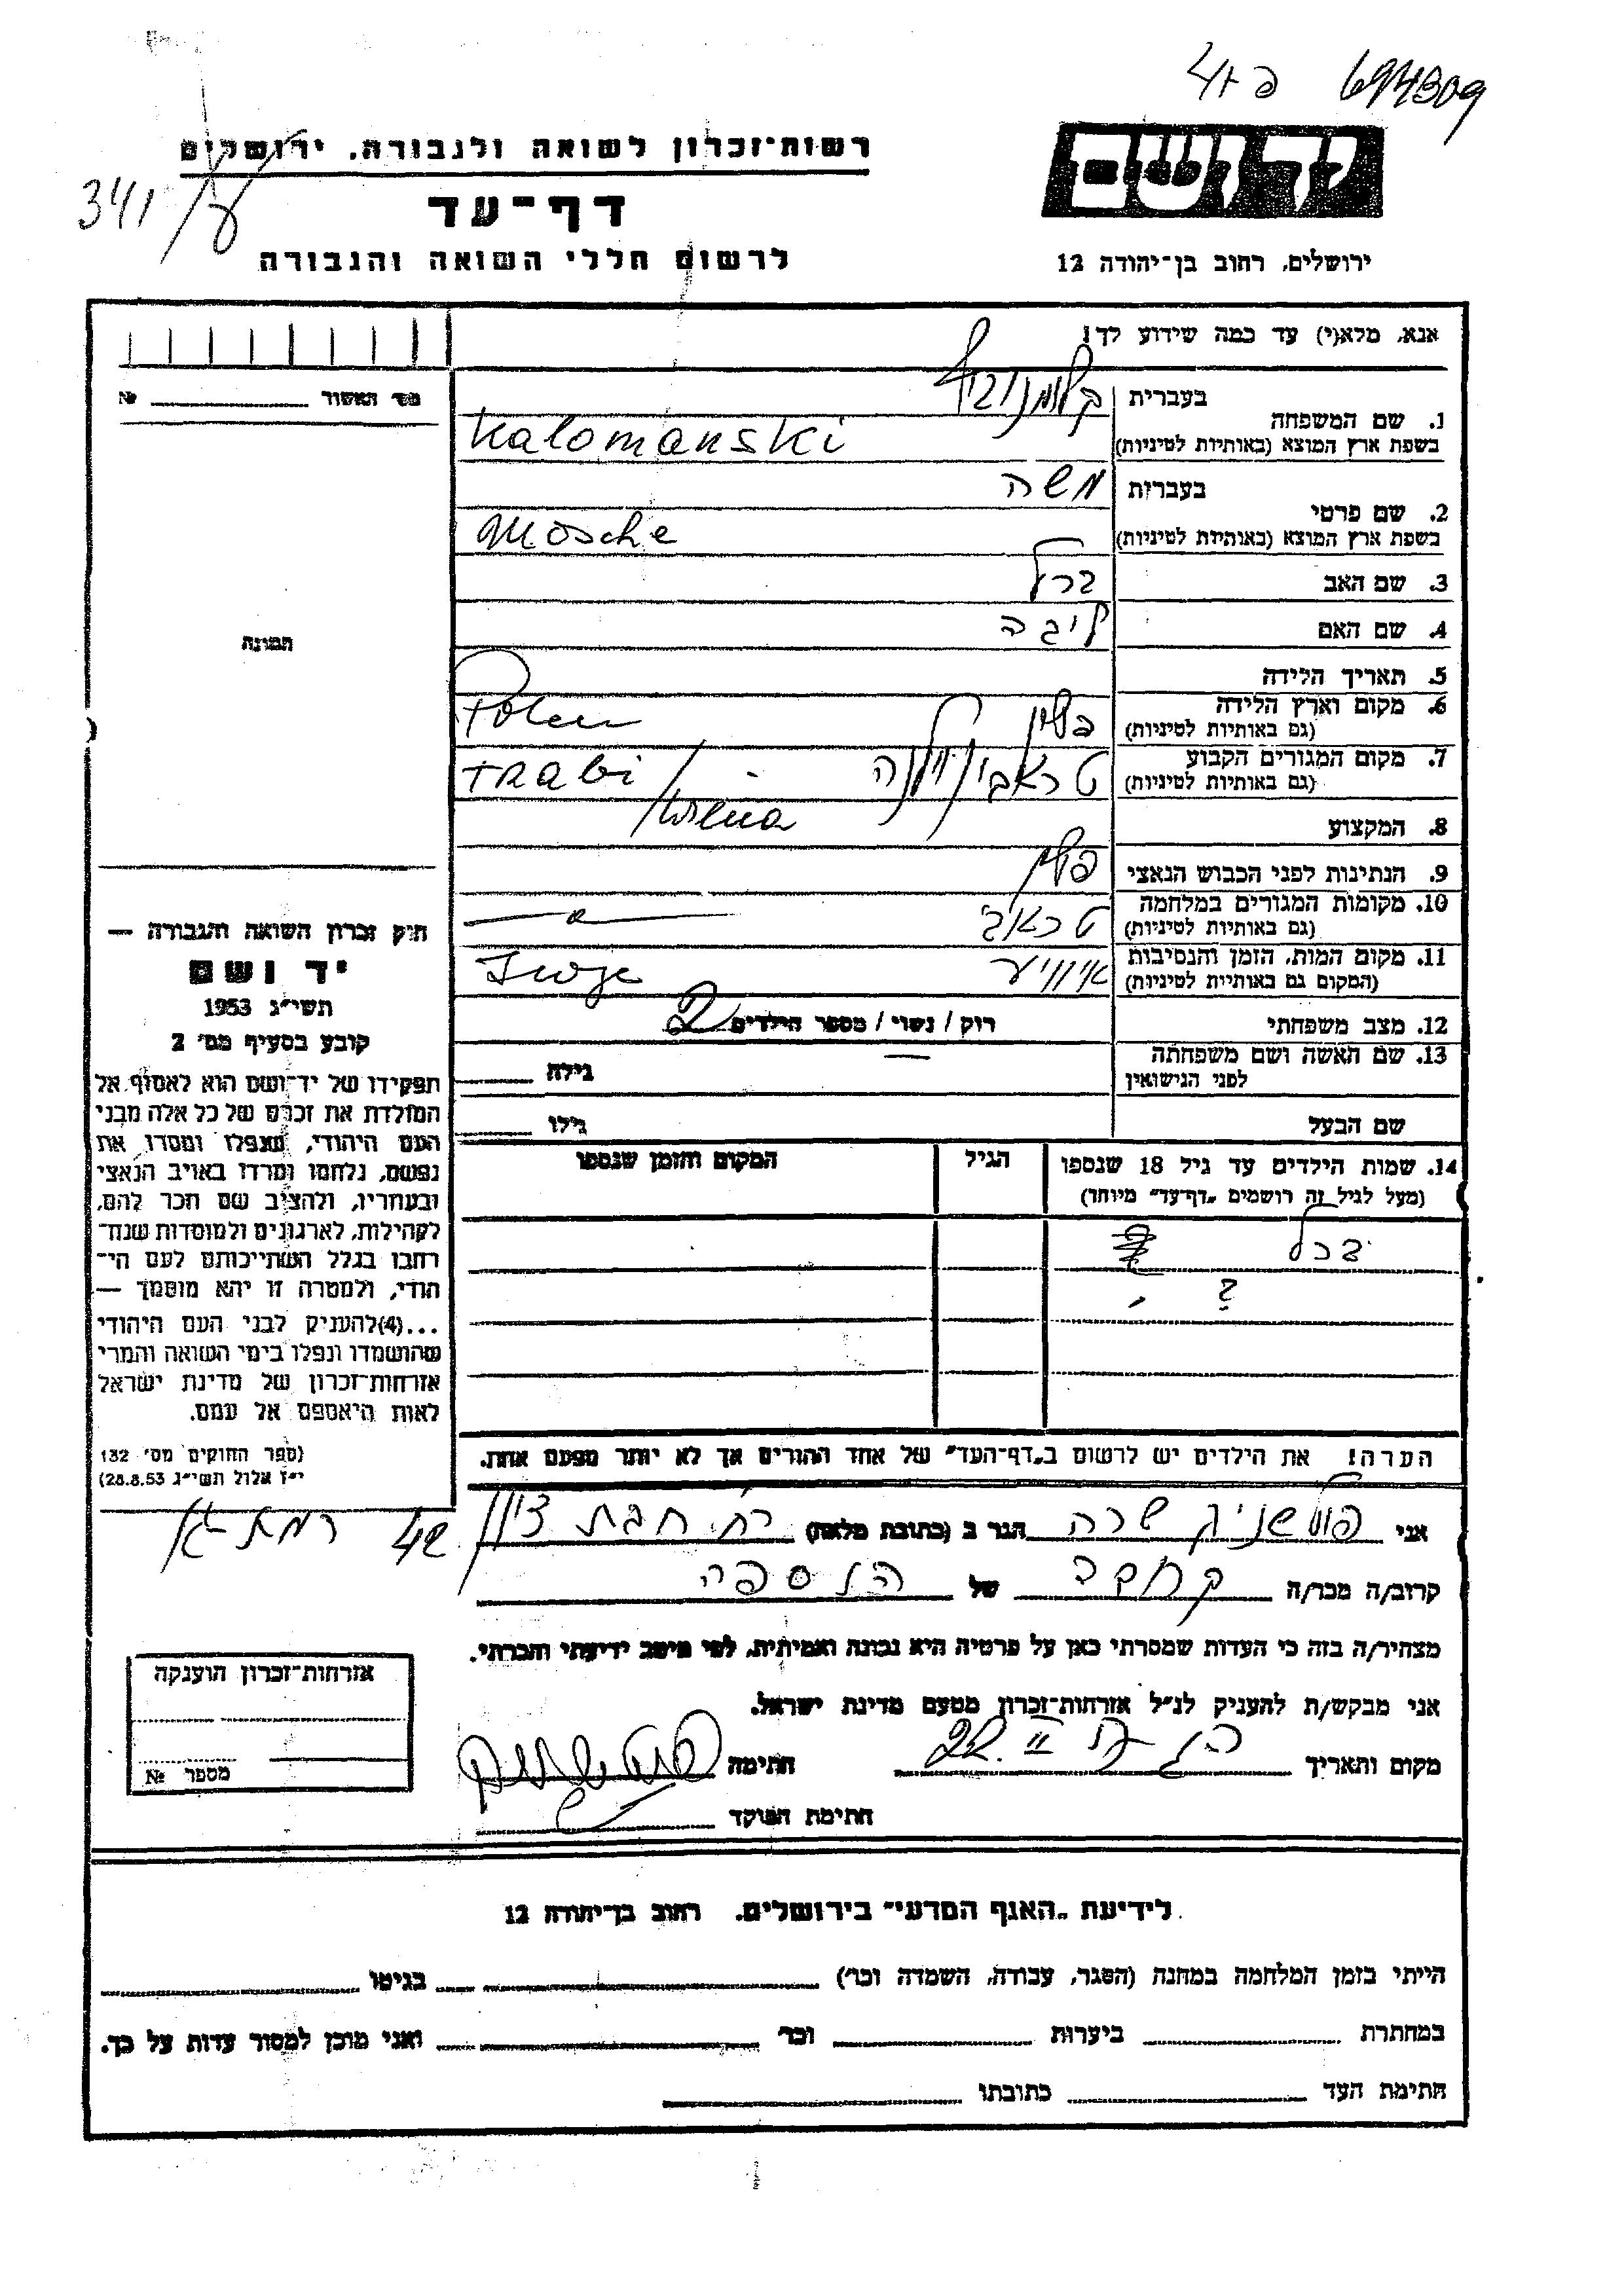 694309
341/ע
יד ושם
רשות־זכרון לשואה ולגבורה, ירושלים
דף־עד
לרשום חללי השואה והגבורה
ירושלים, רחוב בן־יהודה 12
אנא, מלא(י) עד כמה שידוע לך!
מס׳ האשור № 
תמונה
1. שם המשפחה
בעברית
בשפת ארץ המוצא (באותיות לטיניות) Kalomanski
2. שם פרטי
בעברית משה
בשפת ארץ המוצא (באותיות לטיניות) Mosche
3. שם האב ברל
4. שם האם ליבה
5. תאריך הלידה
6. מקום וארץ הלידה פולין Polen
(גם באותיות לטיניות)
7. מקום המגורים הקבוע טראבי/וילנה Trabi/Wilna
(גם באותיות לטיניות)
8. המקצוע
9. הנתינות לפני הכבוש הנאצי פולין
10. מקומות המגורים במלחמה טראבי
(גם באותיות לטיניות)
11. מקום המות, הזמן והנסיבות Iwje
(המקום גם באותיות לטיניות)
12. מצב משפחתי רוק / נשוי / מספר הילדים 2
13. שם האשה ושם משפחתה גילה
לפני הנישואין
שם הבעל גילו
14. שמות הילדים עד גיל 18 שנספו הגיל המקום והזמן שנספו
(מעל לגיל זה רושמים „דף־עד״ מיוחד)
?
הערה! את הילדים יש לרשום ב„דף־העד״ של אחד ההורים אך לא יותר מפעם אחת.
חוק זכרון השואה והגבורה —
יד ושם
תשי״ג 1953
קובע בסעיף מס׳ 2
תפקידו של יד־ושם הוא לאסוף אל
המולדת את זכרם של כל אלה מבני
העם היהודי, שנפלו ומסרו את
נפשם, נלחמו ומרדו באויב הנאצי
ובעוזריו, ולהציב שם וזכר להם,
לקהילות, לארגונים ולמוסדות שנח־
רבו בגלל השתייכותם לעם הי־
הודי, ולמטרה זו יהא מוסמך —
...(4)להעניק לבני העם היהודי
שהושמדו ונפלו בימי השואה והמרי
אזרחות־זכרון של מדינת ישראל
לאות היאספם אל עמם.
(ספר החוקים מס׳ 132
י״ז אלול תשי״ג 28.8.53)
אני שרה הגר ב (כתובת מלאה) רח׳ חבת ציון 42 רמת־גן
קרוב/ה מכר/ה קרובה של הנספה
מצהיר/ה בזה כי העדות שמסרתי כאן על פרטיה היא נכונה ואמיתית, לפי מיטב ידיעתי והכרתי.
אני מבקש/ת להעניק לנ״ל אזרחות־זכרון מטעם מדינת ישראל.
מקום ותאריך חתימה
חתימת הפוקד
אזרחות־זכרון הוענקה
מספר №
לידיעת „האגף המדעי״ בירושלים. רחוב בן־יהודה 12
הייתי בזמן המלחמה במחנה (הסגר, עבודה, השמדה וכו׳) בגיטו
במחתרת ביערות וכו׳ ואני מוכן למסור עדות על כך.
חתימת העד כתובתו